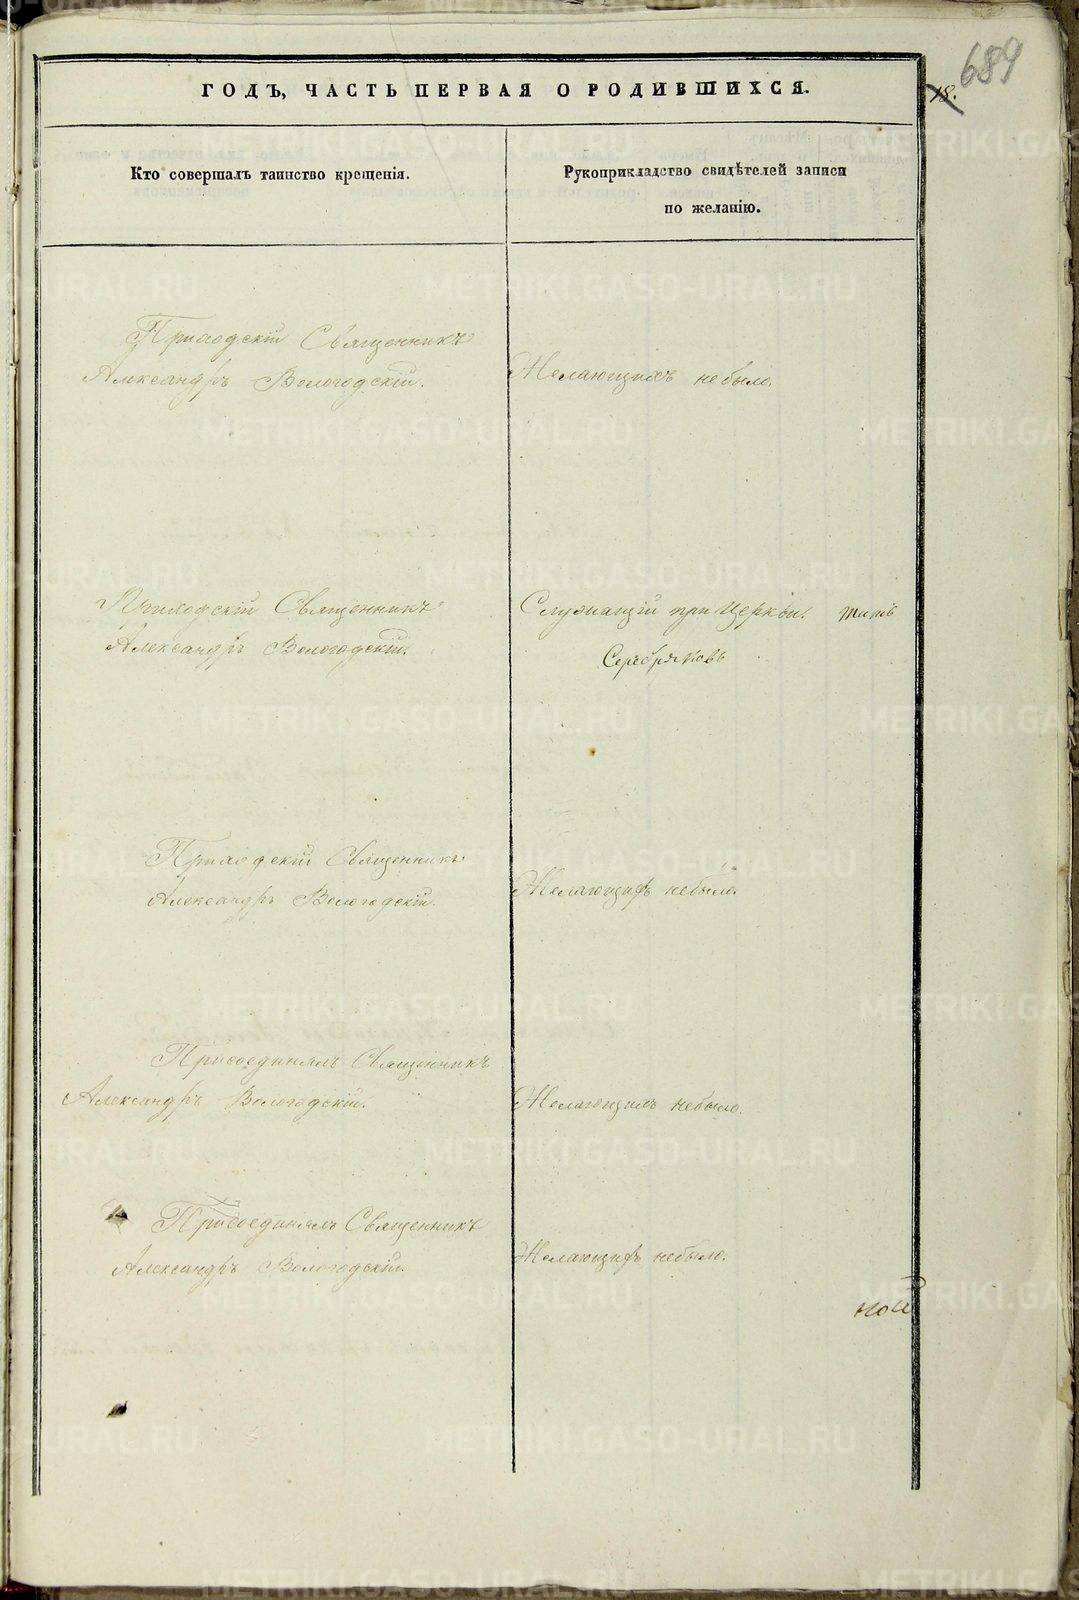 689
18.
ГОДЪ, ЧАСТЬ ПЕРВАЯ О РОДИВШИХСЯ.
Кто совершалъ таинство крещенія.
Рукоприкладство свидѣтелей записи
по желанію.
Приходскій Священникъ
Александръ Вологодскій.
Желающихъ не было.
Приходскій Священникъ
Александръ Вологодскій.
Служащій при Церкви.
Серебряковъ
Приходскій Священникъ
Александръ Вологодскій.
Желающихъ небыло.
Присоединялъ Священникъ
Александръ Вологодскій.
Желающихъ небыло.
Присоединялъ Священникъ
Александръ Вологодскій.
Желающихъ небыло.
METRIKI.GASO-URAL.RU